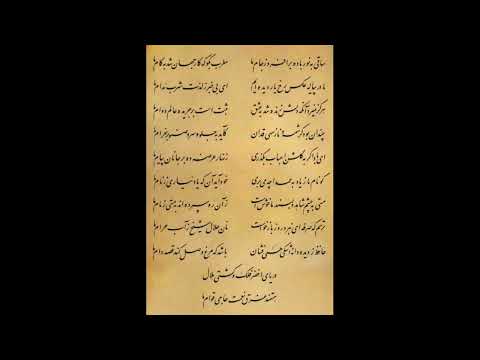 ساقی به نور باده برافروز جام ما مطرب بگو که کار جهان شد به کام ما
ما در پیاله عکس رخ یار دیده‌ایم ای بی‌خبر ز لذت شرب مدام ما
هرگز نمیرد آنکه دلش زنده شد به عشق ثبت است بر جریده عالم دوام ما
چندان بود کرشمه و ناز سهی قدان کاید به جلوه سرو صنوبر خرام ما
ای باد اگر به گلشن احباب بگذری زنهار عرضه ده بر جانان پیام ما
گو نام ما ز یاد به عمدا چه می‌بری خود آید آن که یاد نیاری ز نام ما
مستی به چشم شاهد دلبند ما خوش است زان رو سپرده‌اند به مستی زمام ما
ترسم که صرفه‌ای نبرد روز بازخواست نان حلال شیخ ز آب حرام ما
حافظ ز دیده دانه اشکی همی فشان باشد که مرغ وصل کند قصد دام ما
دریای اخضر فلک و کشتی هلال
هستند غرق نعمت حاجی قوام ما